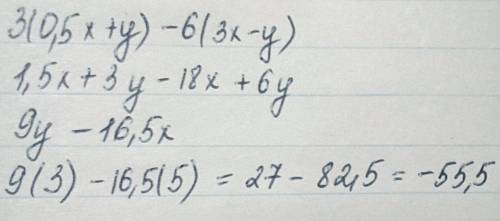 3(0,5x+y) -6(3x-y)
1,5x+3y-18x+6y
9y -16,5x
9(3) -16,5(5) = 27- 82,5 = -55,5